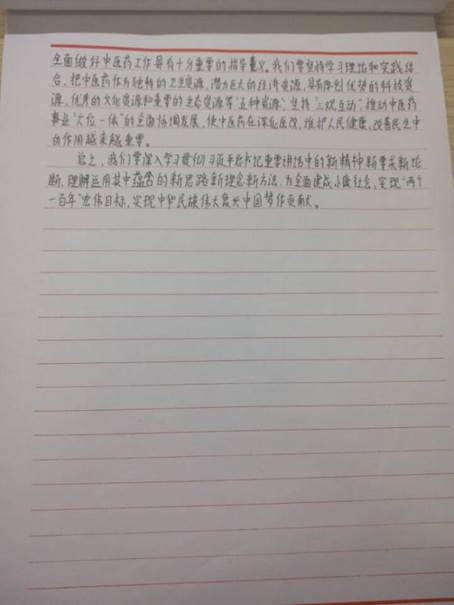 全面做好中医药工作具有十分重要的指导意义。我们要坚持学习理论和实践结
合，把中医药作为独特的卫生资源，潜力巨大的经济资源，具有原创优势的科技资
源，优秀的文化资源和重要的生态资源等“五种资源”，坚持“三观互动”，推动中医药
事业“六位一体”的全面协调发展，使中医药在深化医改，维护人民健康，改善民生中
的作用越来越重要。
总之，我们要深入学习贯彻习近平总书记重要讲话中的新精神新要求新论
断，理解运用其中蕴含的新思路新理念新方法，为全面建成小康社会，实现“两个
一百年”宏伟目标，实现中华民族伟大复兴中国梦作贡献。